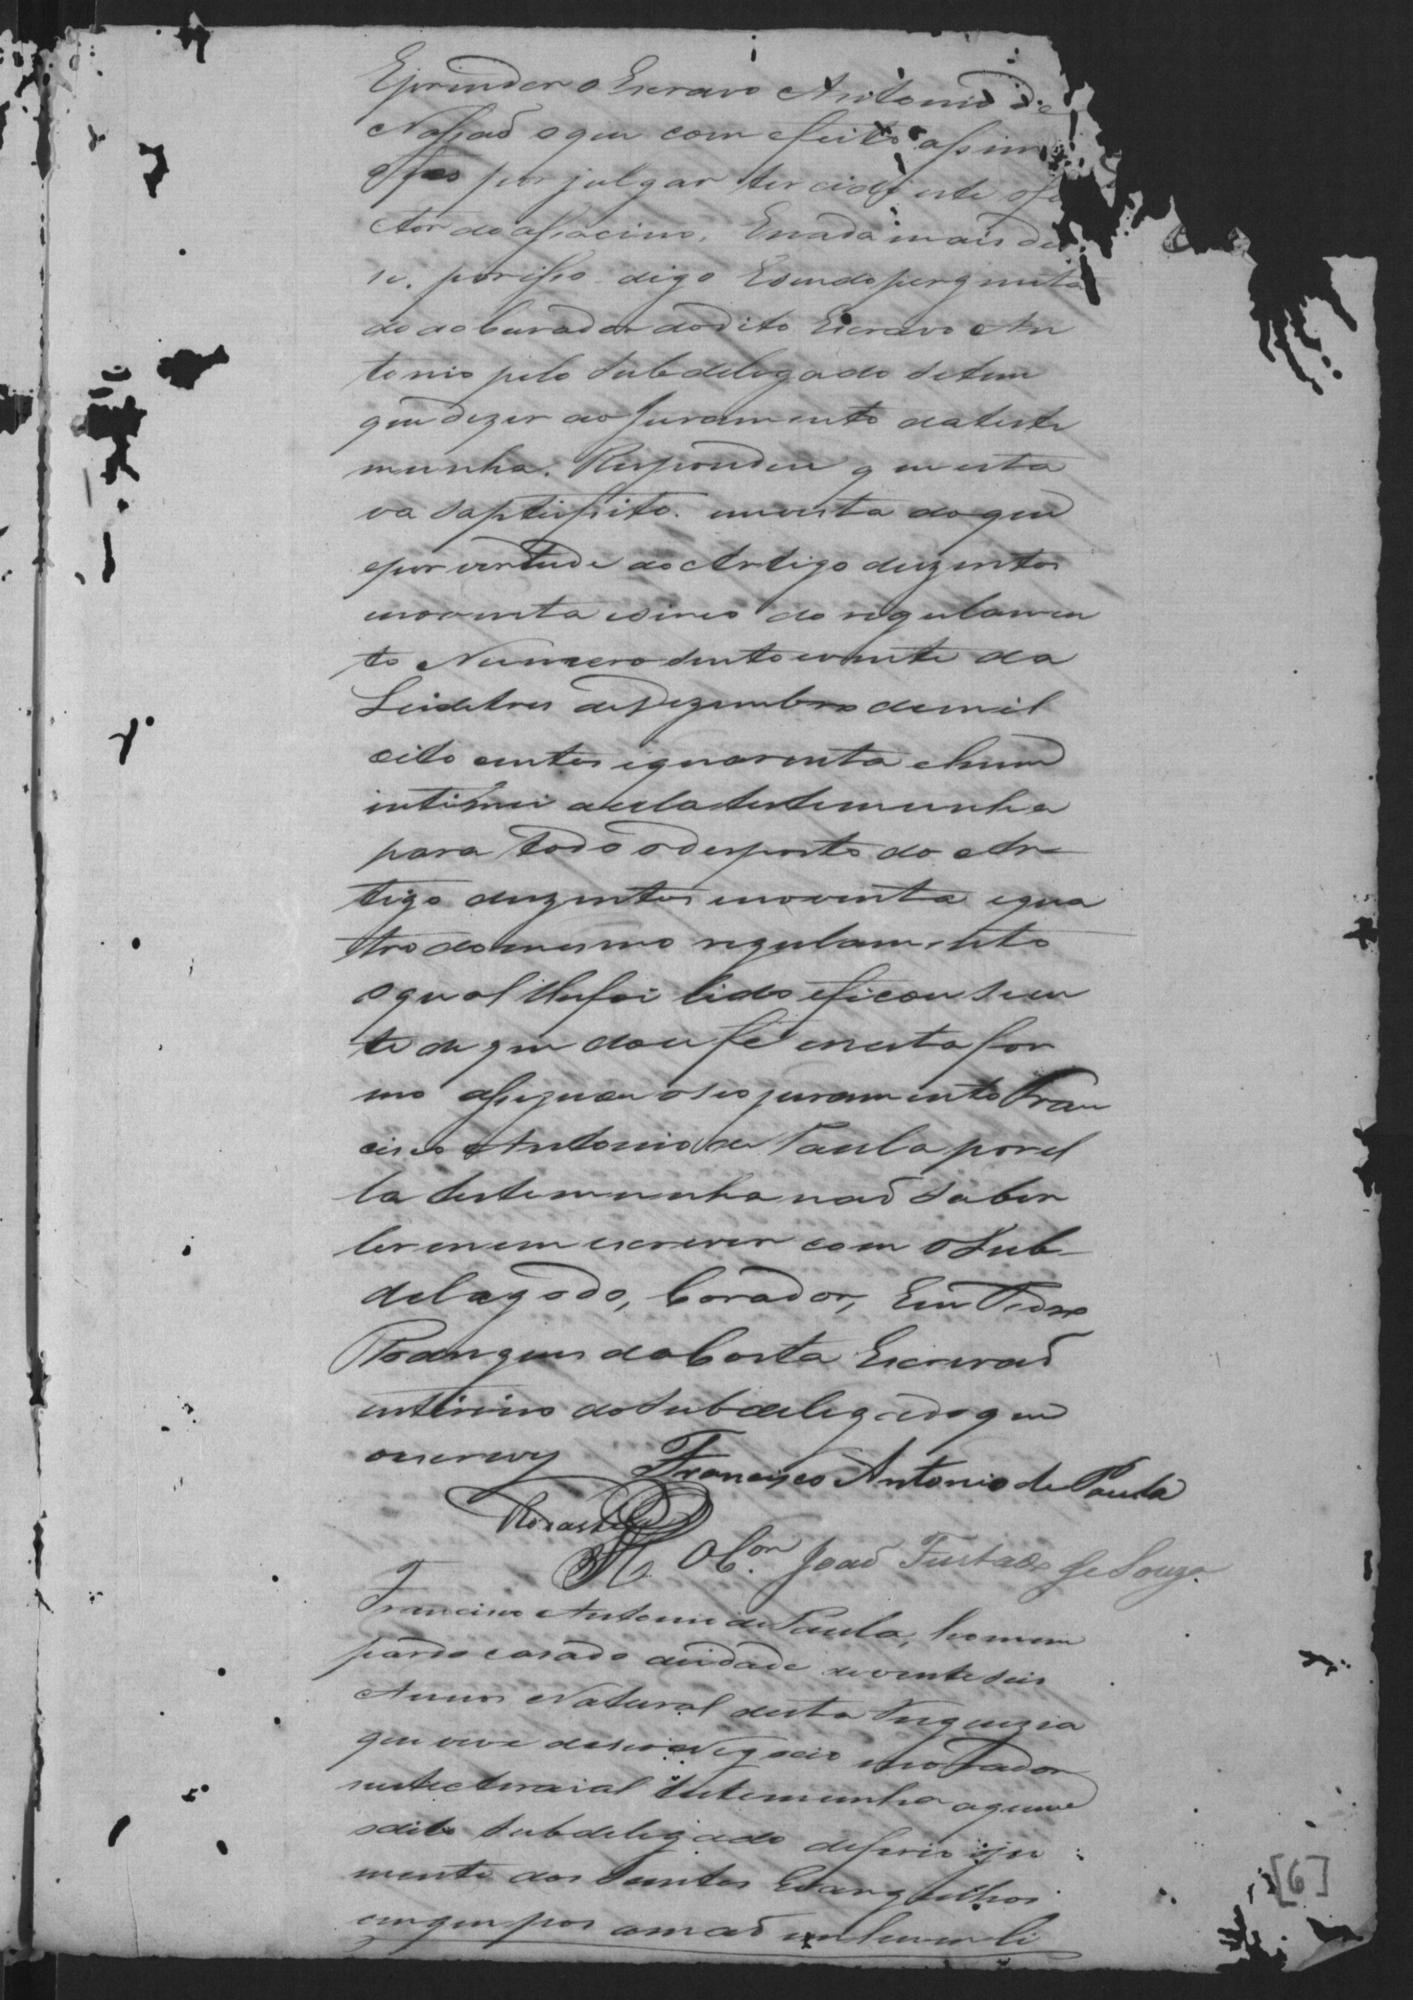 Eprinder o Escravo Antonio de
Nassaõ o que com efeito assim
fes por julgar ter cido este o fa
ctor do assacino. Enada mais di
se. porisso digo Esendo pergunta
do ao Curador do dito Escravo An
tonio pelo Subdelegado setem
que dizer ao Juramento da teste
munha. Respondeu que esta
va satisfeito. em vista do que
epor vertude do Artigo duzentos
enoventa esinco do regulamen
to Numero sento evinte da
Lei de tres de Dezembro de mil
oito centos equarenta ehum
intimei aesta testemunha
para todo o desposto do Ar-
tigo duzentos enoventa equa
tro do mesmo regulamento
o qual lhe foi lido eficou sien
te de que dou fé enesta for
ma assignou oseo juramento Fran
cisco Antonio de Paula por el
la testemunha naõ saber
ler enem escrever com o Sub-
delagado, Corador, Eu Pedro
Rodrigues da Costa Escrivaõ
interino do Subdelegado que
o escrevy Francisco Antonio de Paula
O C.or Joaõ Furtado de Souza.
Francisco Antonio de Paula, homem
pardo casado deidade de vinte seis
Annos Natural desta Freguezia
que vive de seo Negocio morador
neste Arraial testemunha aquem
o dito Subdelegado deferio o ju
mento dos Santos Evangelhos
em que pos a maõ em hum li
[6]